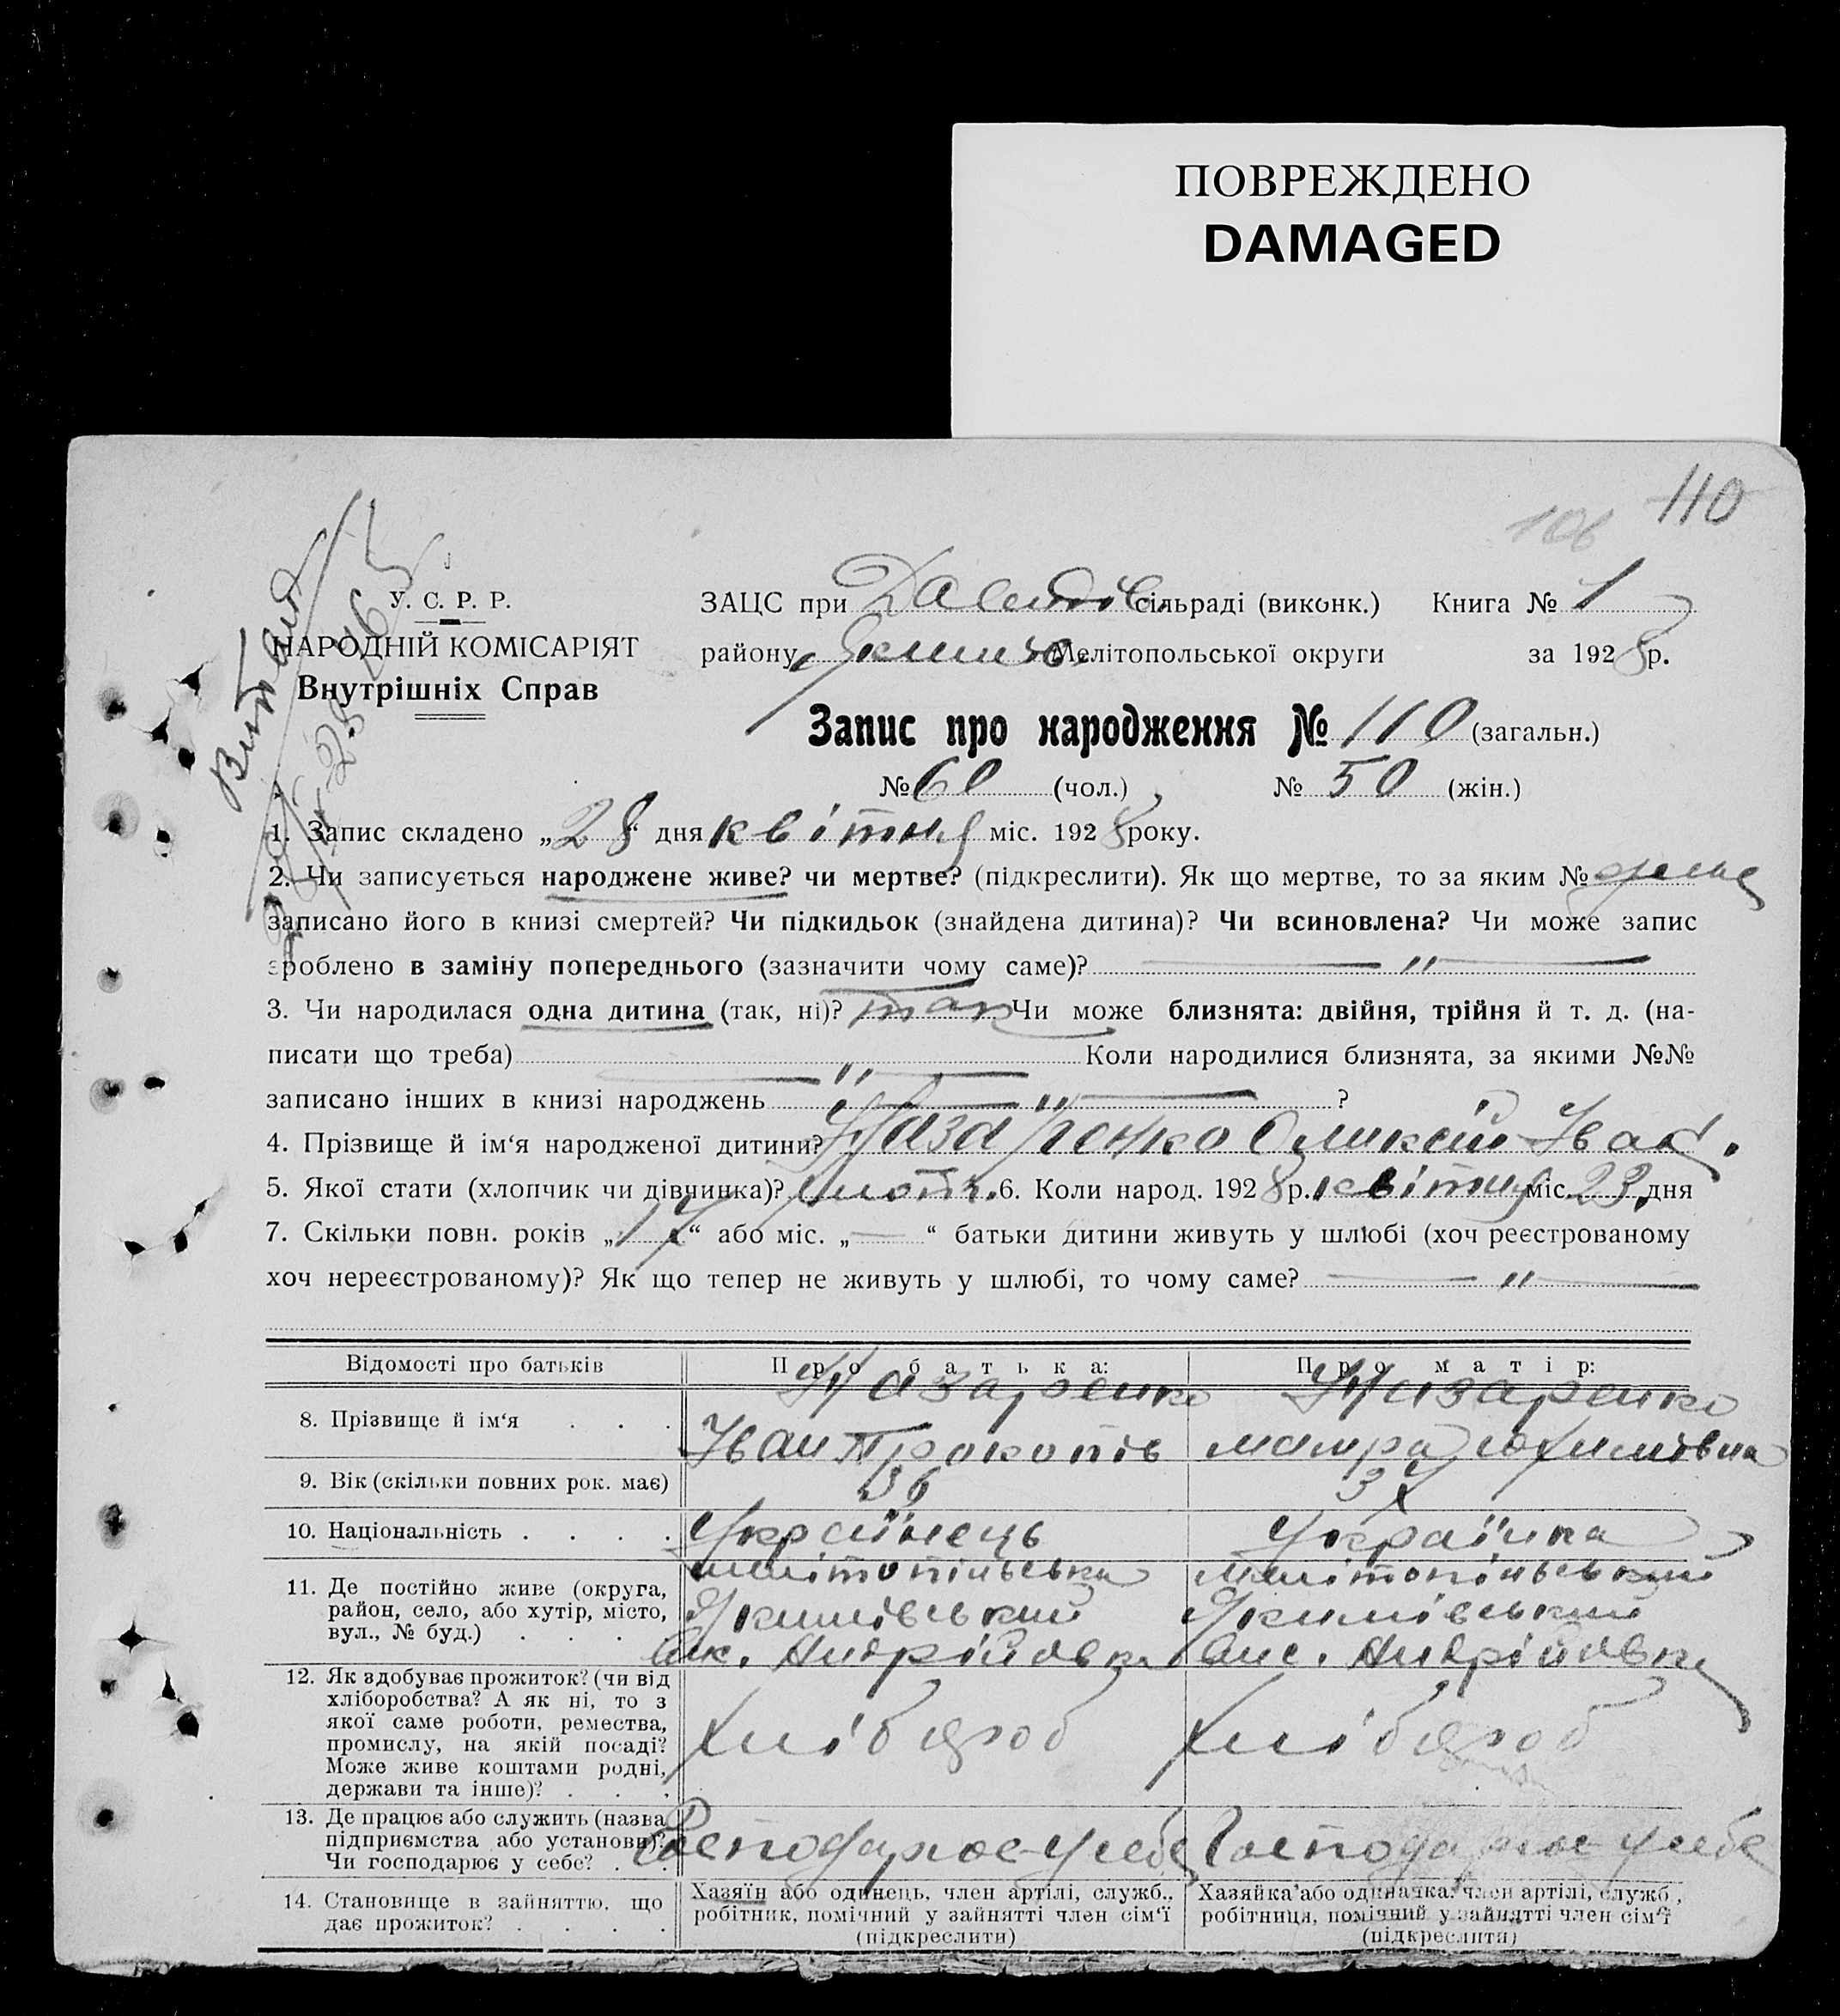 ПОВРЕЖДЕНО
DAMAGED
110
106
У. С. Р. Р.
НАРОДНІЙ КОМІСАРІЯТ
Внутрішніх Справ
ЗАЦС при сільраді (виконк.) Книга № 1
району Якимів. Мелітопольської округи за 1928 р.
Запис про народження № 110 (загальн.)
№ 60 (чол.) № 50 (жін.)
1. Запис складено „28“ дня квітня міс. 1928 року.
2. Чи записується народжене живе? чи мертве? (підкреслити). Як що мертве, то за яким №
записано його в книзі смертей? Чи підкидьок (знайдена дитина)? Чи всиновлена? Чи може запис
зроблено в заміну попереднього (зазначити чому саме)? — „ —
3. Чи народилася одна дитина (так, ні)? так Чи може близнята: двійня, трійня й т. д. (на-
писати що треба) — „ — Коли народилися близнята, за якими №№
записано інших в книзі народжень — „ — ?
4. Прізвище й ім‘я народженої дитини? Назаренко Оликсій Іван.
5. Якої стати (хлопчик чи дівчинка)? хлопч. 6. Коли народ. 1928 р. квітня міс. 23 дня
7. Скільки повн. років „17“ або міс. „—“ батьки дитини живуть у шлюбі (хоч реєстрованому
хоч нереєстрованому)? Як що тепер не живуть у шлюбі, то чому саме? — „ —
Відомості про батьків Про батька: Про матір:
Назаренко Назаренко
8. Прізвище й ім‘я . . . Іван Прокопів Юхимівна
9. Вік (скільки повних рок. має) 36 37
10. Національність . . . . Українець Українка
11. Де постійно живе (округа, район, село, або хутір, місто, вул., № буд.) . . .
Мелітопільська Мелітопільський
Якимівський Якимівський
Андрійовка Андрійовка
12. Як здобуває прожиток? (чи від хліборобства? А як ні, то з якої саме роботи, ремества, промислу, на якій посаді? Може живе коштами родні, держави та інше)? . . .
Хлібороб Хлібороб
13. Де працює або служить (назва підприємства або установи)? Чи господарює у себе? . . .
Господарює у себе Господарює у себе
14. Становище в зайняттю, що дає прожиток? . . . .
Хазяїн або одинець, член артілі, служб., робітник, помічний у зайнятті член сім‘ї (підкреслити)
Хазяйка або одиначка, член артілі, служб., робітниця, помічний у зайнятті член сім‘ї (підкреслити)